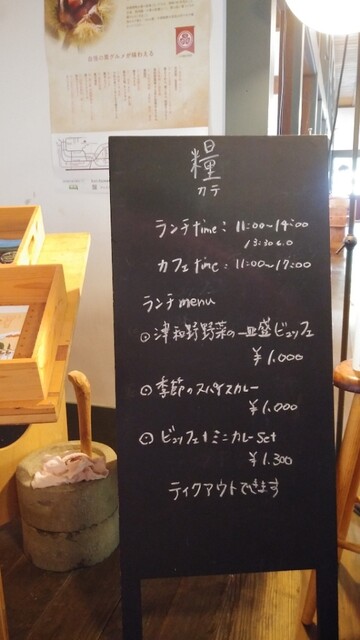 自慢の栗グルメが味わえる
糧
カテ
ランチtime: 11:00〜14:00
13:30 L.O
カフェtime: 11:00〜17:00
ランチmenu
⊙津和野野菜の一皿盛ビュッフェ
¥1.000
⊙季節のスパイスカレー
¥1.000
⊙ビュッフェ+ミニカレーset
¥1.300
テイクアウトできます